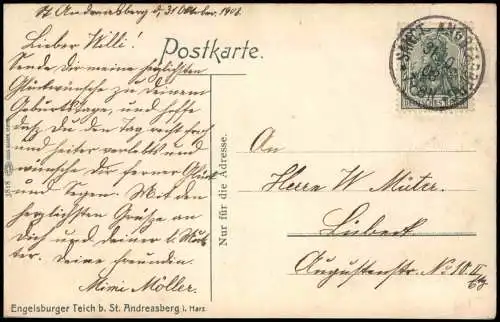 St Andreasberg d, 31 Oktober. 1908
Lieber Willi!
Sende dir meine herzlichsten
Glückwünsche zu deinem
Geburtstage, und hoffe
daß du den Tag recht froh
und heiter verlebst und
wünsche dir ferner Glück
und Segen. Mit den
herzlichsten Grüße an
Dich und deiner l. Mut
ter. Deine Freundin.
Mimi Möller.
Postkarte.
Nur für die Adresse.
1818
SANKT ANDREASBERG
DEUTSCHES REICH
An
Herrn W Mütze.
Lübeck
Augustenstr. No 10. II
Etg
Engelsburger Teich b. St. Andreasberg i. Harz